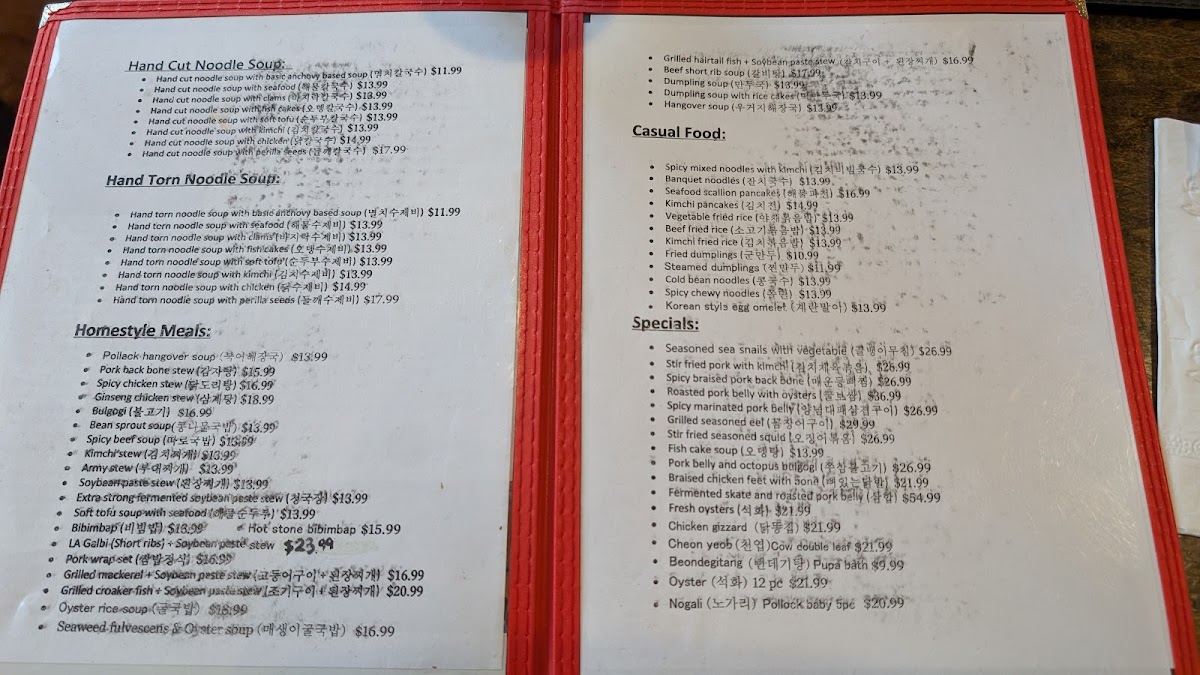 Hand Cut Noodle Soup:
Hand cut noodle soup with basic anchovy based soup (멸치칼국수) $11.99
Hand cut noodle soup with seafood (해물칼국수) $13.99
Hand cut noodle soup with clams (바지락칼국수) $13.99
Hand cut noodle soup with fish cakes (오뎅칼국수) $13.99
Hand cut noodle soup with soft tofu (순두부칼국수) $13.99
Hand cut noodle soup with kimchi (김치칼국수) $13.99
Hand cut noodle soup with chicken (닭칼국수) $14.99
Hand cut noodle soup with perilla seeds (들깨칼국수) $17.99
Hand Torn Noodle Soup:
Hand torn noodle soup with basic anchovy based soup (멸치수제비) $11.99
Hand torn noodle soup with seafood (해물수제비) $13.99
Hand torn noodle soup with clams (바지락수제비) $13.99
Hand torn noodle soup with fish cakes (오뎅수제비) $13.99
Hand torn noodle soup with soft tofu (순두부수제비) $13.99
Hand torn noodle soup with kimchi (김치수제비) $13.99
Hand torn noodle soup with chicken (닭수제비) $14.99
Hand torn noodle soup with perilla seeds (들깨수제비) $17.99
Homestyle Meals:
Pollack hangover soup (북어해장국) $13.99
Pork back bone stew (감자탕) $15.99
Spicy chicken stew (닭도리탕) $16.99
Ginseng chicken stew (삼계탕) $18.99
Bulgogi (불고기) $16.99
Bean sprout soup (콩나물국밥) $13.99
Spicy beef soup (따로국밥) $13.99
Kimchi stew (김치찌개) $13.99
Army stew (부대찌개) $13.99
Soybean paste stew (된장찌개) $13.99
Extra strong fermented soybean paste stew (청국장) $13.99
Soft tofu soup with seafood (해물순두부) $13.99
Bibimbap (비빔밥) $13.99 Hot stone bibimbap $15.99
LA Galbi (Short ribs) + Soybean paste stew $23.99
Pork wrap set (쌈밥정식) $16.99
Grilled mackerel + Soybean paste stew (고등어구이 + 된장찌개) $16.99
Grilled croaker fish + Soybean paste stew (조기구이 + 된장찌개) $20.99
Oyster rice soup (굴국밥) $18.99
Seaweed fulvescens & Oyster soup (매생이굴국밥) $16.99
Grilled hairtail fish + Soybean paste stew (갈치구이 + 된장찌개) $16.99
Beef short rib soup (갈비탕) $17.99
Dumpling soup (만두국) $13.99
Dumpling soup with rice cakes (떡만두국) $13.99
Hangover soup (우거지해장국) $13.99
Casual Food:
Spicy mixed noodles with kimchi (김치비빔국수) $13.99
Banquet noodles (잔치국수) $13.99
Seafood scallion pancakes (해물파전) $16.99
Kimchi pancakes (김치전) $14.99
Vegetable fried rice (야채볶음밥) $13.99
Beef fried rice (소고기볶음밥) $13.99
Kimchi fried rice (김치볶음밥) $13.99
Fried dumplings (군만두) $10.99
Steamed dumplings (찐만두) $11.99
Cold bean noodles (콩국수) $13.99
Spicy chewy noodles (쫄면) $13.99
Korean style egg omelet (계란말이) $13.99
Specials:
Seasoned sea snails with vegetable (골뱅이무침) $26.99
Stir fried pork with kimchi (김치제육볶음) $26.99
Spicy braised pork back bone (매운등뼈찜) $26.99
Roasted pork belly with oysters (굴보쌈) $36.99
Spicy marinated pork belly (양념대패삼겹구이) $26.99
Grilled seasoned eel (꼼장어구이) $29.99
Stir fried seasoned squid (오징어볶음) $26.99
Fish cake soup (오뎅탕) $13.99
Pork belly and octopus bulgogi (쭈삼불고기) $26.99
Braised chicken feet with bone (뼈있는닭발) $21.99
Fermented skate and roasted pork belly (삼합) $54.99
Fresh oysters (석화) $21.99
Chicken gizzard (닭똥집) $21.99
Cheon yeob (천엽) Cow double leaf $21.99
Beondegitang (번데기탕) Pupa bath $9.99
Oyster (석화) 12 pc $21.99
Nogali (노가리) Pollock baby 5pc $20.99